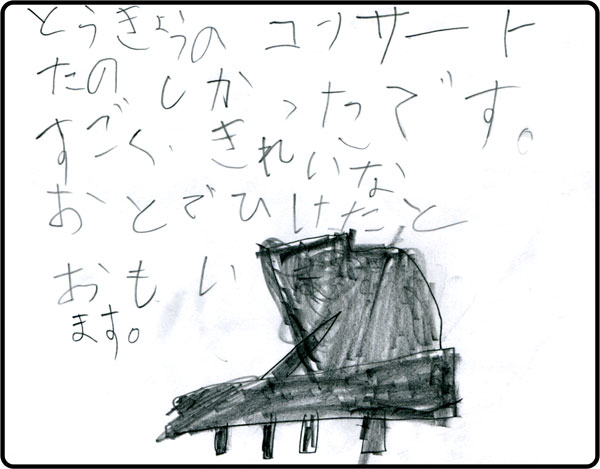 とうきょうの コンサート
たのしかったです。
すごく、きれいな
おとでひけたと
おもい
ます。